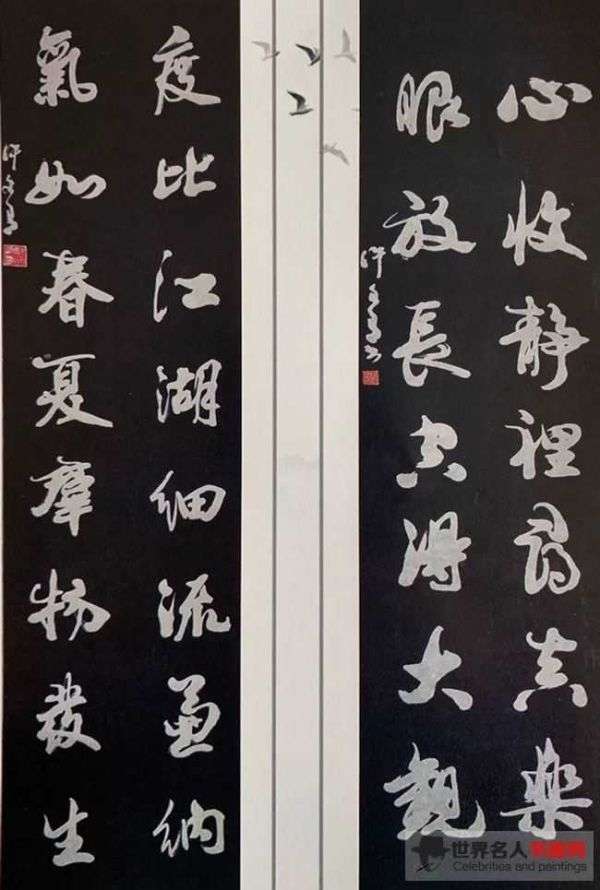 心收静裡尋真樂
眼放長空得大觀
度比江湖細流兼納
氣如春夏羣物發生
世界名人书画网
Celebrities and paintings